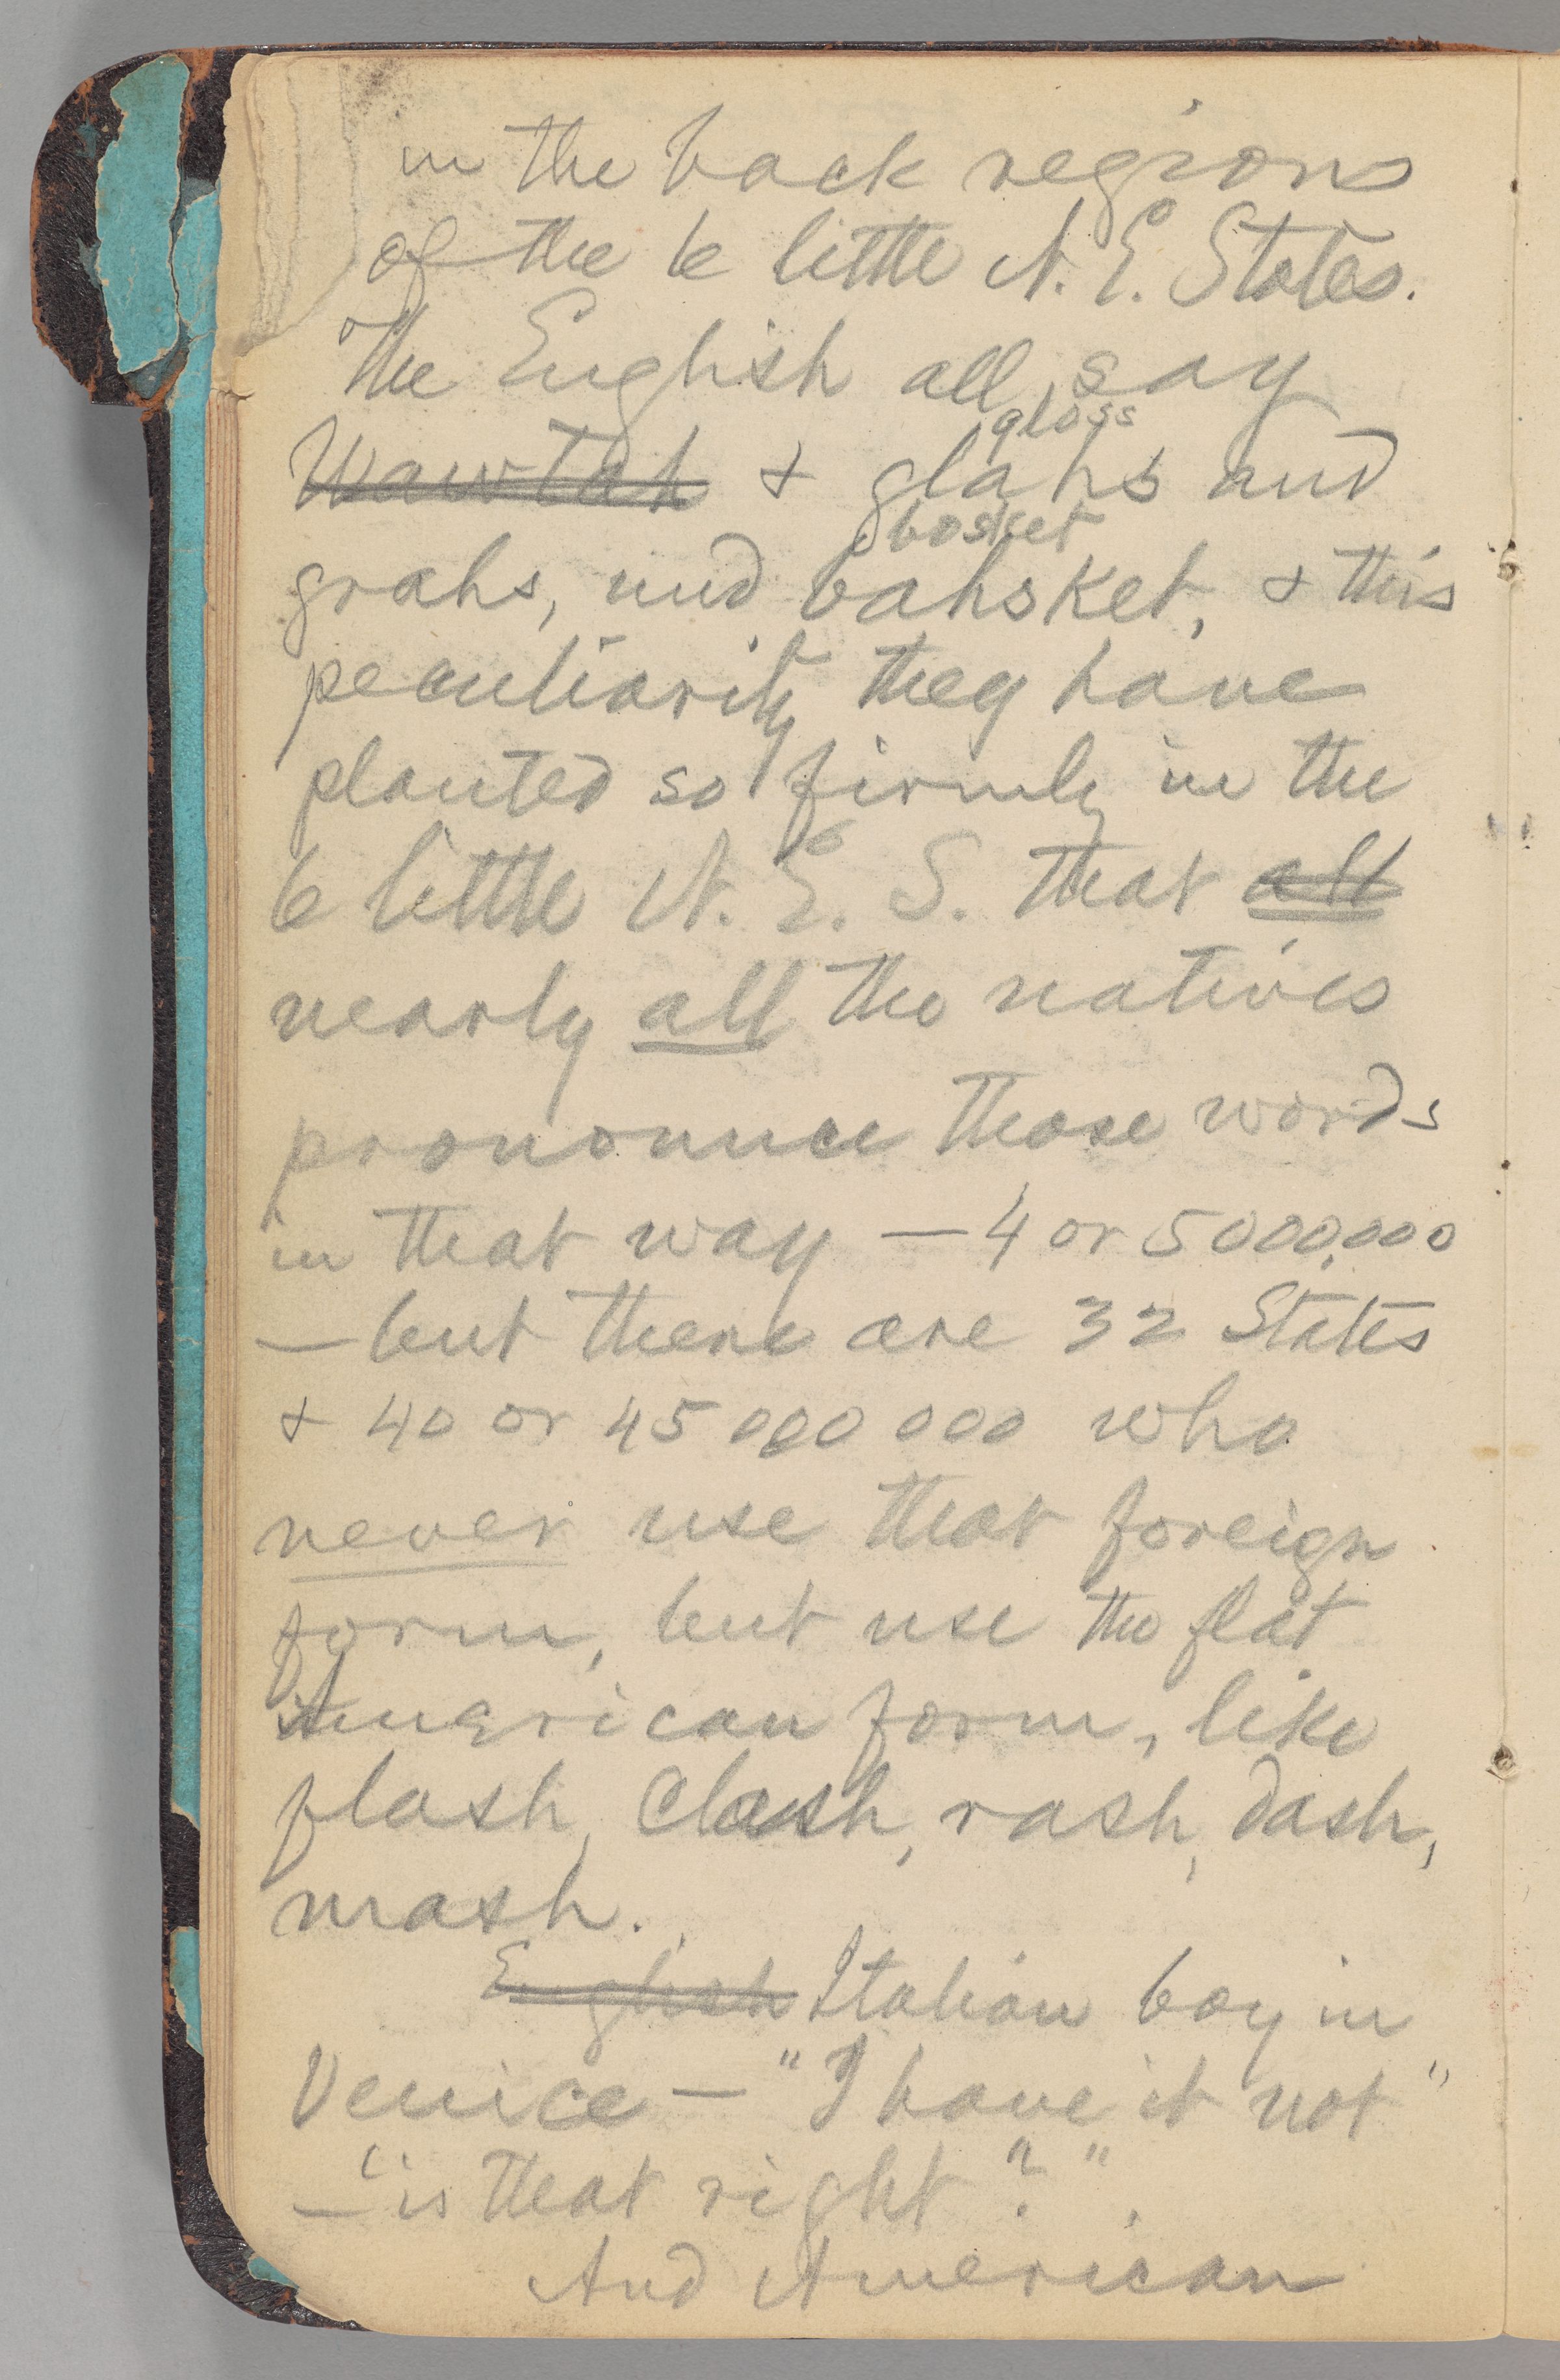 in the back regions
of the 6 little N. E. States.
The English all say
gloss
Wawtah & glahs and
bosket
grahs, and bahsket, & this
peculiarity they have
planted so firmly in the
6 little N. E. S. that all
nearly all the natives
pronounce those words
in that way — 4 or 5000,000
— but there are 32 States
& 40 or 45 000 000 who
never use that foreign
form, but use the flat
American form, like
flash, Clash, rash, dash,
mash.
English Italian boy in
Venice — "I have it not"
— "is that right?".
And American